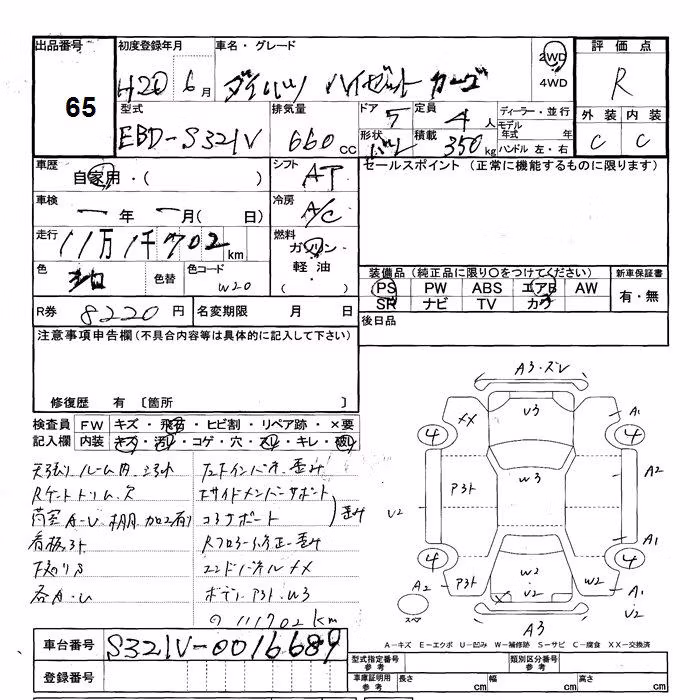 出品番号 初度登録年月 車名・グレード 2WD 評価点
65 H20 6月 ダイハツ ハイゼット カーゴ 4WD R
型式 排気量 ドア 5 定員 4人 ディーラー・並行 外装 内装
EBD-S321V 660cc 形状 バン 積載 350kg モデル年式 年 C C
ハンドル 左・右
車歴 自家用・( ) シフト AT セールスポイント (正常に機能するものに限ります)
車検 一年 一月( 日) 冷房 A/C
走行 11万1千702km 燃料 ガソリン・軽油・( )
色 色替 色コード W20 装備品(純正品に限り○をつけてください) 新車保証書
PS PW ABS エアB AW 有・無
SR ナビ TV カワ
R券 8220円 名変期限 月 日 後日品
注意事項申告欄(不具合内容等は具体的に記入して下さい)
修復歴 有 〔箇所 〕
検査員 FW キズ・飛石・ヒビ割・リペア跡・×要
記入欄 内装 キズ・汚れ・コゲ・穴・スレ・キレ・破れ
天張り ルーム内
荷室 A-U 棚用 加工有
看板
下廻りS
各A・U
歪み
コーナーサポート 歪み
Rフロアー 修正・歪み
エンドパネル XX
ボデー P3ト W3
111702 km
A3・ズレ
XX U3 A1
4 4
P3ト W3 A2
U2
A1
4 4
A2 P3ト W2 X U2 W2 A1
U2
スペア A3
A-キズ E-エクボ U-凹み W-補修跡 S-サビ C-腐食 XX-交換済
車台番号 S321V-0016689
登録番号
型式指定番号 参考 類別区分番号 参考
車庫証明用 参考 長さ cm 幅 cm 高さ cm